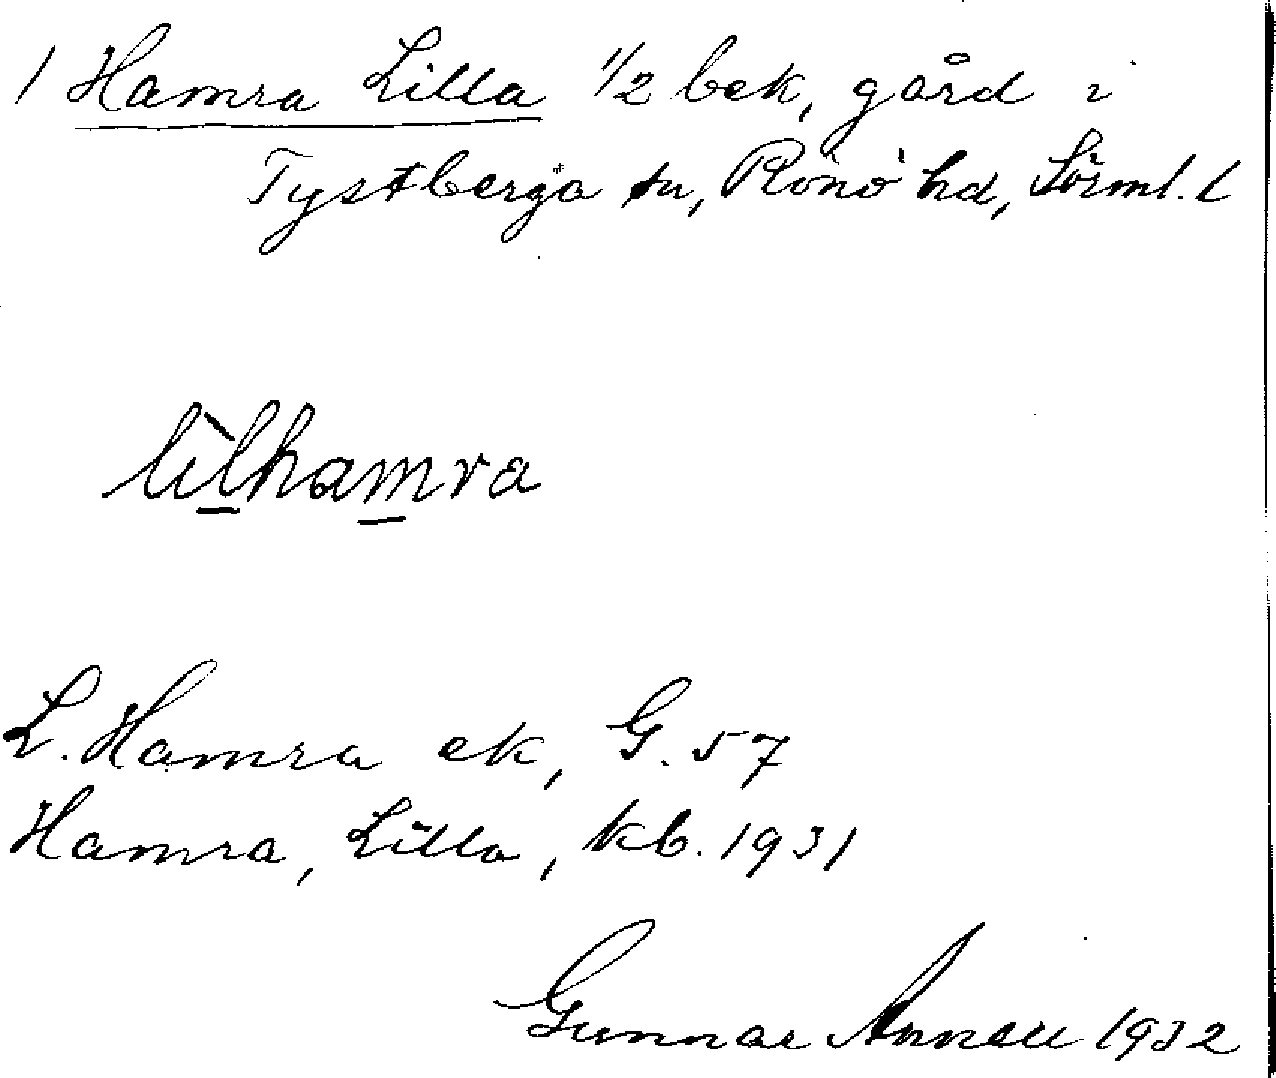 1 Hamra Lilla 1/2 bek, gård i
Tystberga sn, Rönö hd, Sörml. l
lìlhamra
L. Hamra ek, G. 57
Hamra, Lilla, kb. 1931
Gunnar Annell 1932